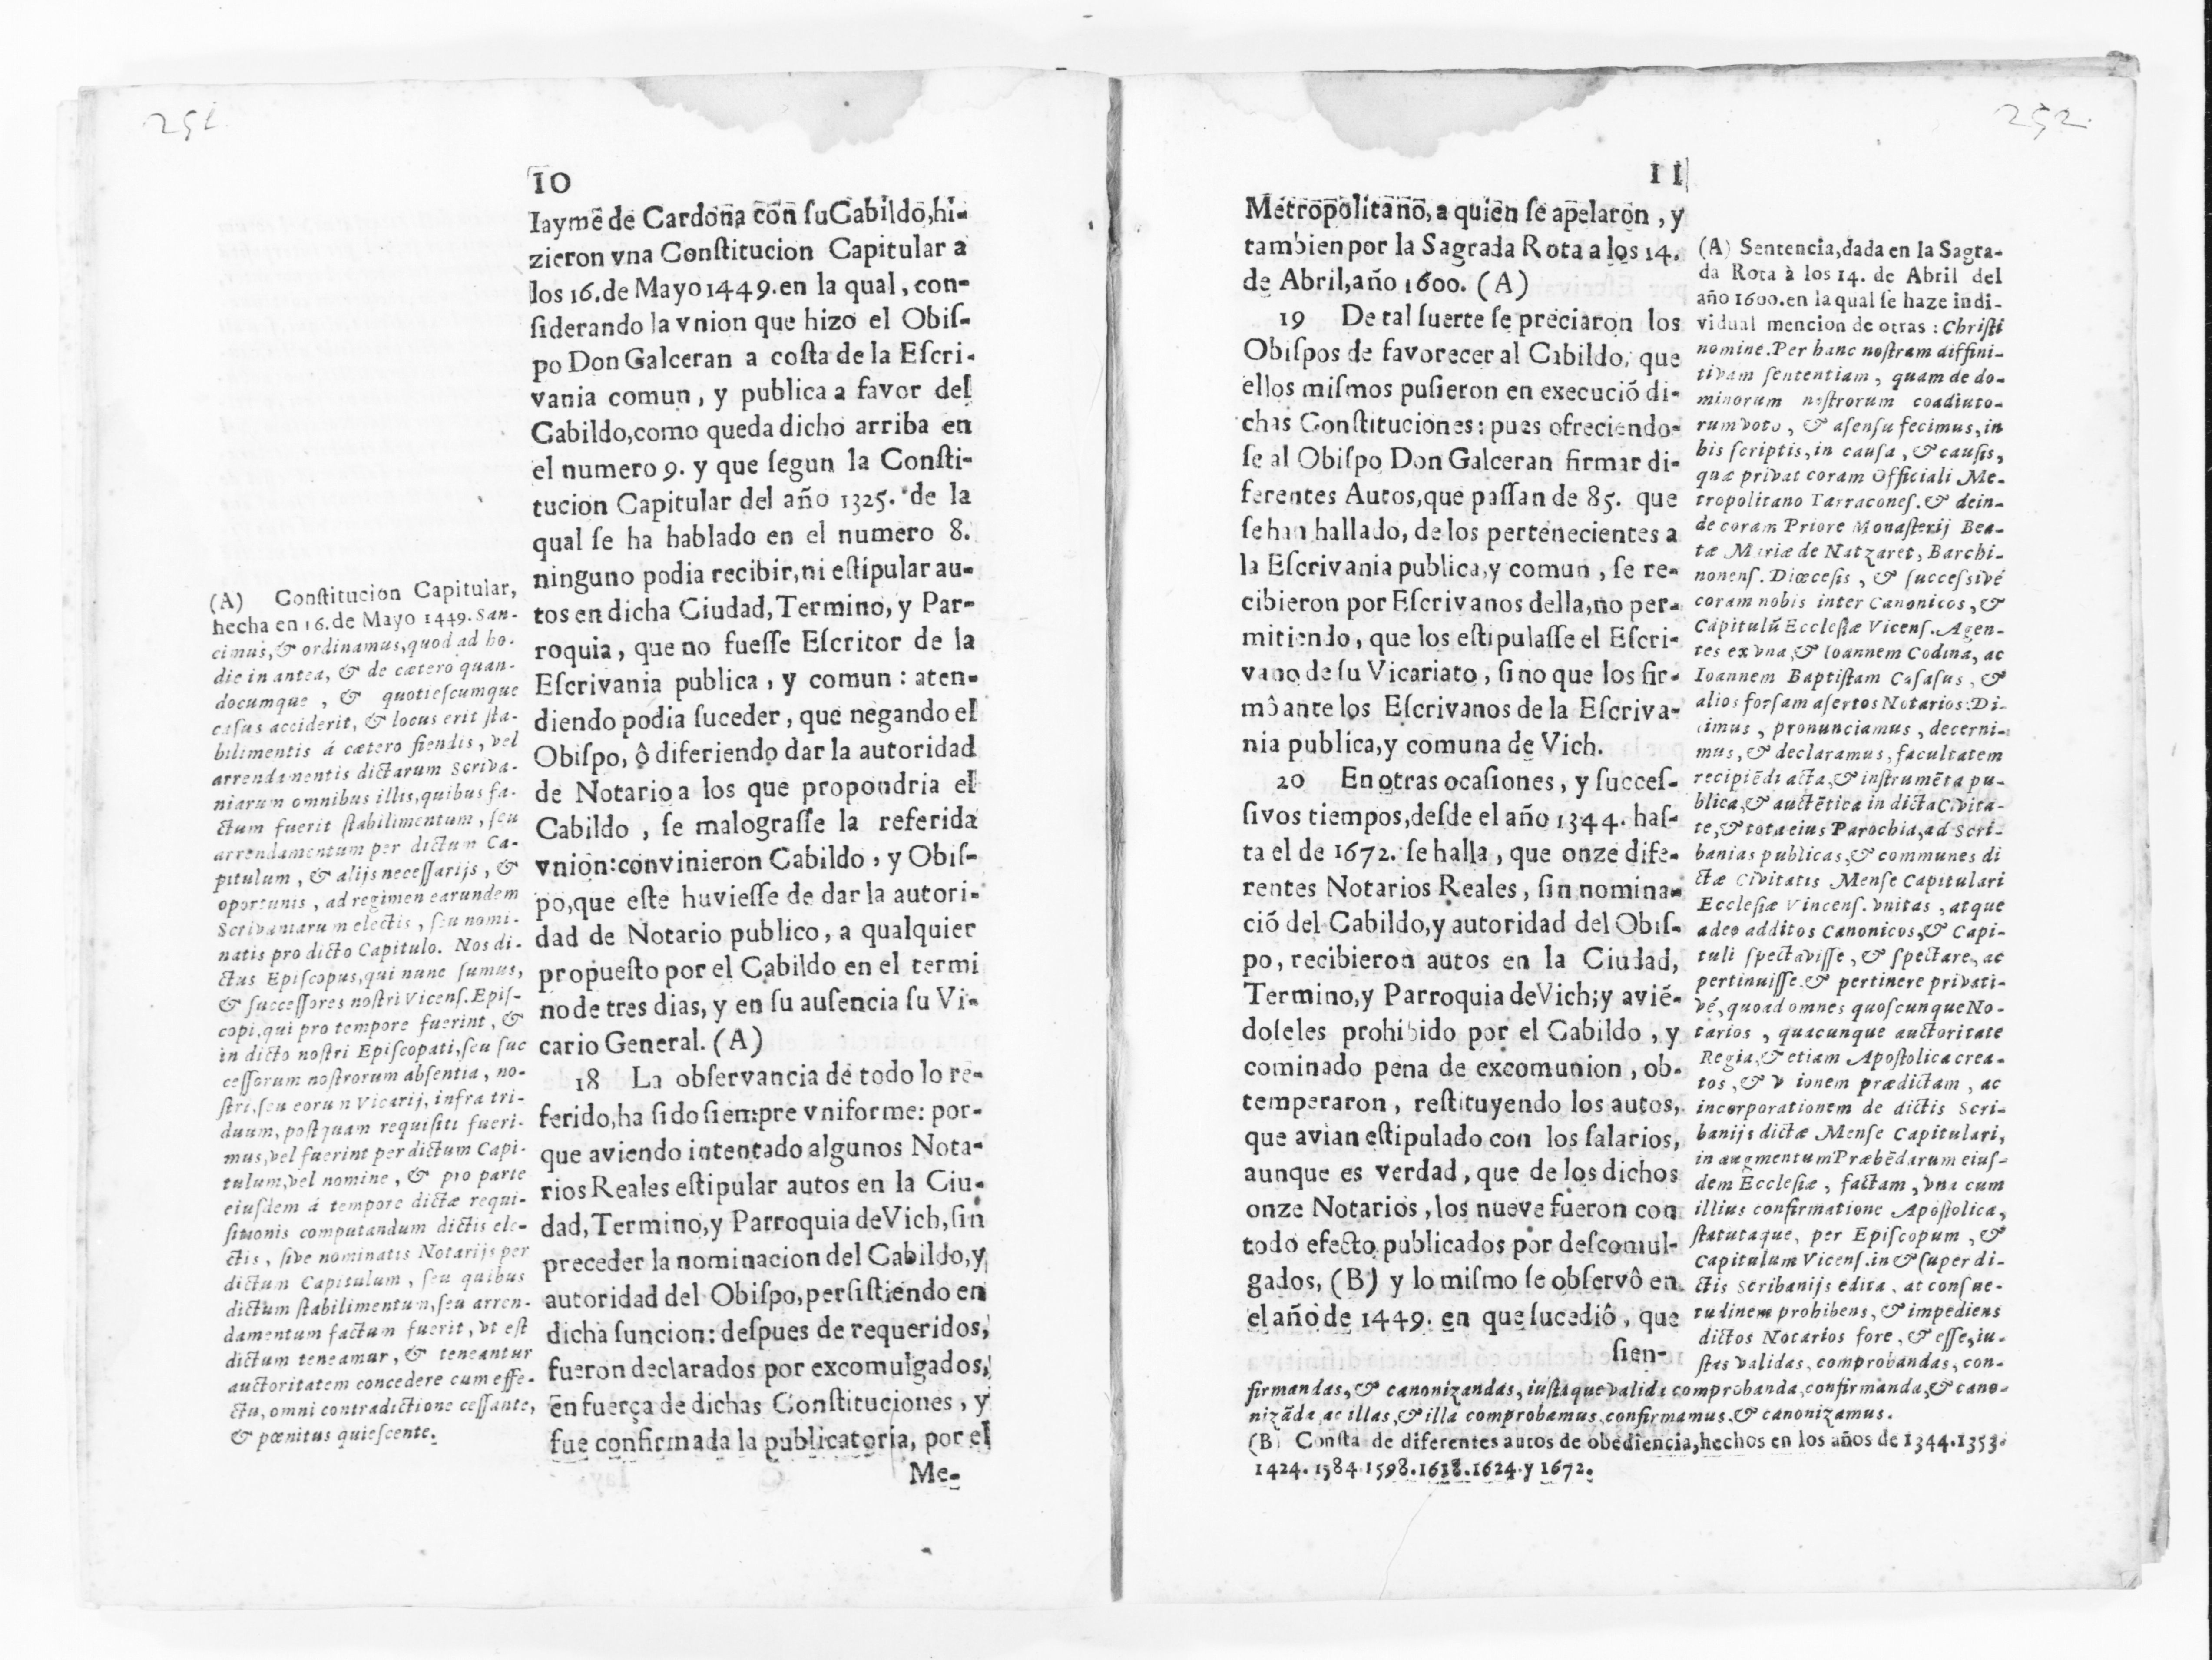 251
10
Iayme de Cardona con ſu Cabildo, hi-
zieron vna Conſtitucion Capitular a
los 16. de Mayo 1449. en la qual, con-
ſiderando la vnion que hizo el Obiſ-
po Don Galceran a coſta de la Eſcri-
vania comun, y publica a favor del
Cabildo, como queda dicho arriba en
el numero 9. y que ſegun la Conſti-
tucion Capitular del año 1325. de la
qual ſe ha hablado en el numero 8.
ninguno podia recibir, ni eſtipular au-
tos en dicha Ciudad, Termino, y Par-
roquia, que no fueſſe Eſcritor de la
Eſcrivania publica, y comun: aten-
diendo podia ſuceder, que negando el
Obiſpo, ô diferiendo dar la autoridad
de Notario a los que propondria el
Cabildo, ſe malograſſe la referida
vnion: convinieron Cabildo, y Obiſ-
po, que eſte huvieſſe de dar la autori-
dad de Notario publico, a qualquier
propueſto por el Cabildo en el termi
no de tres dias, y en ſu auſencia ſu Vi-
cario General. (A)
18 La obſervancia de todo lo re-
ferido, ha ſido ſiempre vniforme: por-
que aviendo intentado algunos Nota-
rios Reales eſtipular autos en la Ciu-
dad, Termino, y Parroquia de Vich, ſin
preceder la nominacion del Cabildo, y
autoridad del Obiſpo, perſiſtiendo en
dicha funcion: deſpues de requeridos,
fueron declarados por excomulgados,
en fuerça de dichas Conſtituciones, y
fue confirmada la publicatoria, por el
Me-
(A) Conſtitucion Capitular,
hecha en 16. de Mayo 1449. San-
cimus, & ordinamus, quod ad ho-
die in antea, & de cætero quan-
documque, & quotieſcumque
caſus acciderit, & locus erit ſta-
bilimentis á cætero fiendis, vel
arrendamentis dictarum Scriva-
niarum omnibus illis, quibus fa-
ctum fuerit ſtabilimentum, ſeu
arrendamentum per dictum Ca-
pitulum, & alijs neceſſarijs, &
oportunis, ad regimen earundem
Scrivaniarum electis, ſeu nomi-
natis pro dicto Capitulo. Nos di-
ctus Epiſcopus, qui nunc ſumus,
& ſucceſſores noſtri Vicenſ. Epiſ-
copi, qui pro tempore fuerint, &
in dicto noſtri Epiſcopati, ſeu ſuc
ceſſorum noſtrorum abſentia, no-
ſtri, ſeu eorun Vicarij, infra tri-
duum, poſtquam requiſiti fueri-
mus, vel fuerint per dictum Capi-
tulum, vel nomine, & pro parte
eiuſdem á tempore dictæ requi-
ſitionis computandum dictis ele-
ctis, ſive nominatis Notarijs per
dictum Capitulum, ſeu quibus
dictum ſtabilimentum, ſeu arren-
damentum factum fuerit, vt eſt
dictum teneamur, & teneantur
auctoritatem concedere cum effe-
ctu, omni contradictione ceſſante,
& pœnitus quieſcente.
252
11
Metropolitano, a quien ſe apelaron, y
tambien por la Sagrada Rota a los 14.
de Abril, año 1600. (A)
19 De tal ſuerte ſe preciaron los
Obiſpos de favorecer al Cabildo, que
ellos miſmos puſieron en execució di-
chas Conſtituciones: pues ofreciendo-
ſe al Obiſpo Don Galceran firmar di-
ferentes Autos, que paſſan de 85. que
ſe han hallado, de los pertenecientes a
la Eſcrivania publica, y comun, ſe re-
cibieron por Eſcrivanos della, no per-
mitiendo, que los eſtipulaſſe el Eſcri-
vano de ſu Vicariato, ſino que los fir-
mô ante los Eſcrivanos de la Eſcriva-
nia publica, y comuna de Vich.
20 En otras ocaſiones, y ſucceſ-
ſivos tiempos, deſde el año 1344. haſ-
ta el de 1672. ſe halla, que onze dife-
rentes Notarios Reales, ſin nomina-
ció del Cabildo, y autoridad del Obiſ-
po, recibieron autos en la Ciudad,
Termino, y Parroquia de Vich; y avié-
doſeles prohibido por el Cabildo, y
cominado pena de excomunion, ob-
temperaron, reſtituyendo los autos,
que avian eſtipulado con los ſalarios,
aunque es verdad, que de los dichos
onze Notarios, los nueve fueron con
todo efecto publicados por deſcomul-
gados, (B) y lo miſmo ſe obſervô en
el año de 1449. en que ſucediô, que
ſien-
(A) Sentencia, dada en la Sagra-
da Rota à los 14. de Abril del
año 1600. en la qual ſe haze indi-
vidual mencion de otras: Chriſti
nomine. Per hanc noſtram diffini-
tivam ſententiam, quam de do-
minorum noſtrorum coadiuto-
rum voto, & aſenſu fecimus, in
his ſcriptis, in cauſa, & cauſis,
quæ privat coram Officiali Me-
tropolitano Tarraconeſ. & dein-
de coram Priore Monaſterij Bea-
tæ Mariæ de Natzaret, Barchi-
nonenſ. Diœceſis, & ſucceſsivé
coram nobis inter Canonicos, &
Capitulũ Eccleſiæ Vicenſ. Agen-
tes ex vna, & Ioannem Codina, ac
Ioannem Baptiſtam Caſaſus, &
alios forſam aſertos Notarios: Di-
cimus, pronunciamus, decerni-
mus, & declaramus, facultatem
recipiẽdi acta, & inſtrumẽta pu-
blica, & auctẽtica in dicta Civita-
te, & tota eius Parochia, ad Scri-
banias publicas, & communes di
ctæ Civitatis Menſe Capitulari
Eccleſiæ Vincenſ. vnitas, atque
adeo additos Canonicos, & Capi-
tuli ſpectaviſſe, & ſpectare, ac
pertinuiſſe. & pertinere privati-
vé, quoad omnes quoſcunque No-
tarios, quacunque auctoritate
Regia, & etiam Apoſtolica crea-
tos, & v ionem prædictam, ac
incorporationem de dictis Scri-
banijs dictæ Menſe Capitulari,
in augmentum Præbẽdarum eiuſ-
dem Eccleſiæ, factam, vna cum
illius confirmatione Apoſtolica,
ſtatutaque, per Epiſcopum, &
Capitulum Vicenſ. in & ſuper di-
ctis Scribanijs edita, at conſue-
tudinem prohibens, & impediens
dictos Notarios fore, & eſſe, iu-
ſtas validas, comprobandas, con-
firmandas, & canonizandas, iuſtaque valida comprobanda, confirmanda, & cano-
nizãda, ac illas, & illa comprobamus, confirmamus, & canonizamus.
(B) Conſta de diferentes autos de obediencia, hechos en los años de 1344. 1353.
1424. 1584 1598. 1618. 1624. y 1672.